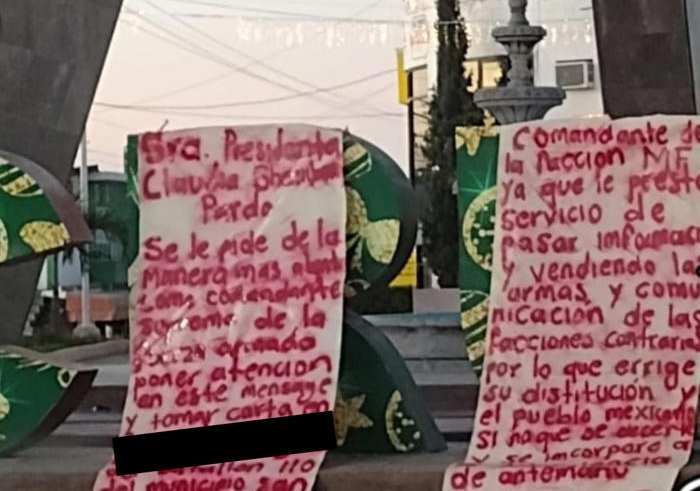 Sra. Presidenta
Claudia Sheinbaum
Pardo
Se le pide de la
manera mas atenta
como comandante
suprema de la
armado
poner atencion
en este mensage
y tomar carta en
batallon 110
del municipio san
Comandante de
la faccion MF
ya que le presta
servicio de
pasar informac
y vendiendo las
armas y comu
nicacion de las
facciones contrarias
por lo que errige
su distitución y
el pueblo mexicano
si haque se
y se incorpora a
de antemano